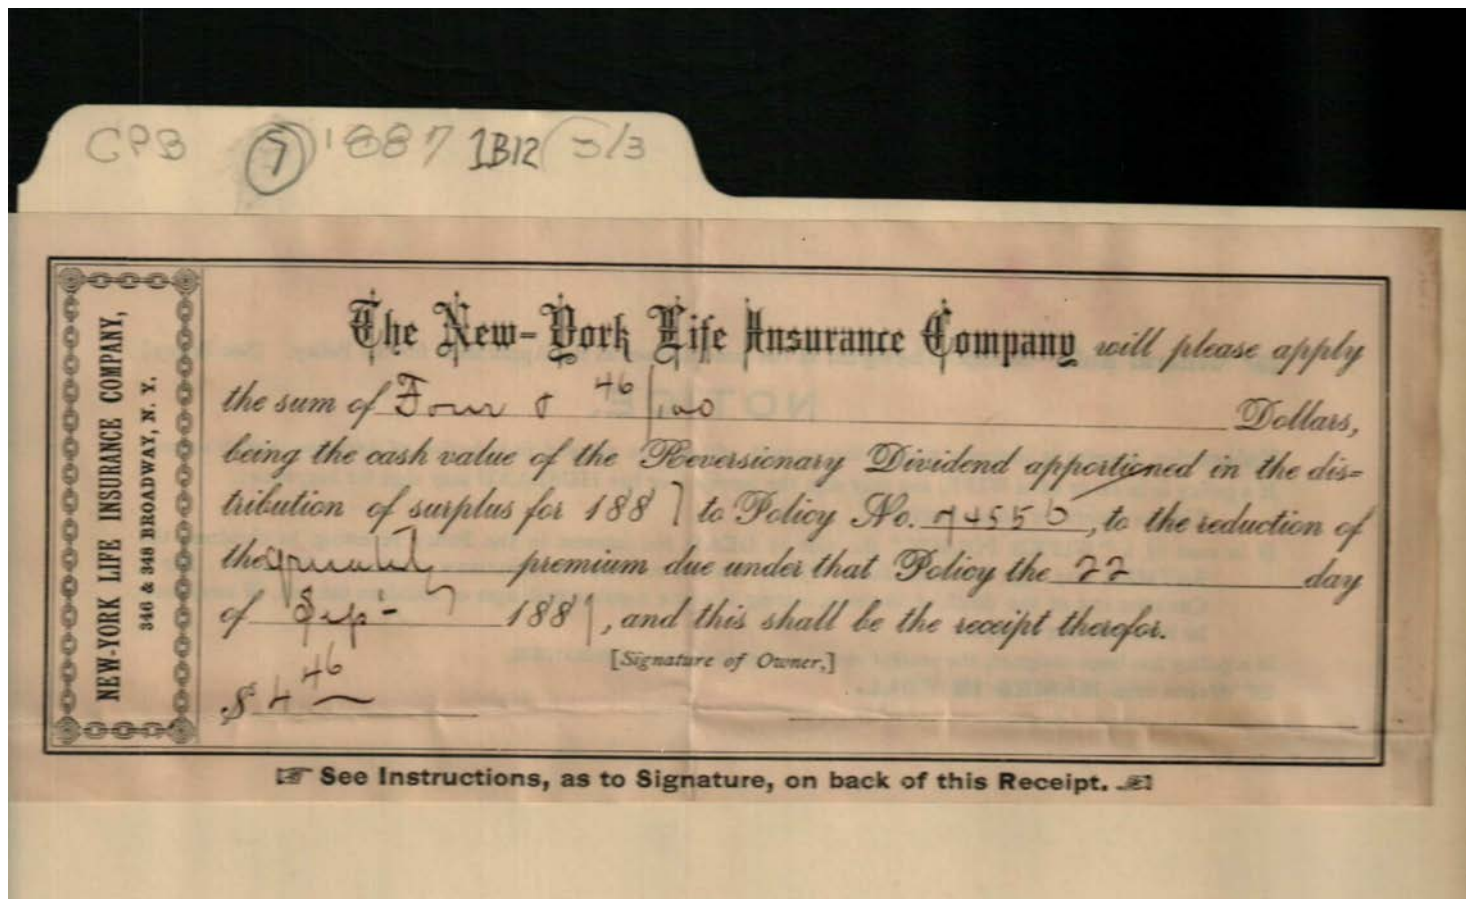 CPB 7 1887 1B12 5/3
NEW-YORK LIFE INSURANCE COMPANY,
346 & 348 BROADWAY, N. Y.
The New-York Life Insurance Company will please apply
the sum of Four & 46/100 Dollars,
being the cash value of the Reversionary Dividend apportioned in the dis-
tribution of surplus for 1887 to Policy No. 74556, to the reduction of
the premium due under that Policy the 22 day
of Sep- 1887, and this shall be the receipt therefor.
[Signature of Owner,]
$ 4 46
☞ See Instructions, as to Signature, on back of this Receipt. ☜